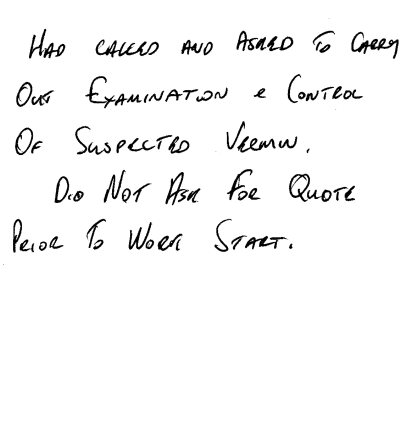 HAD CALLED AND ASKED TO CARRY
OUT EXAMINATION & CONTROL
OF SUSPECTED VERMIN.
DID NOT ASK FOR QUOTE
PRIOR TO WORK START.